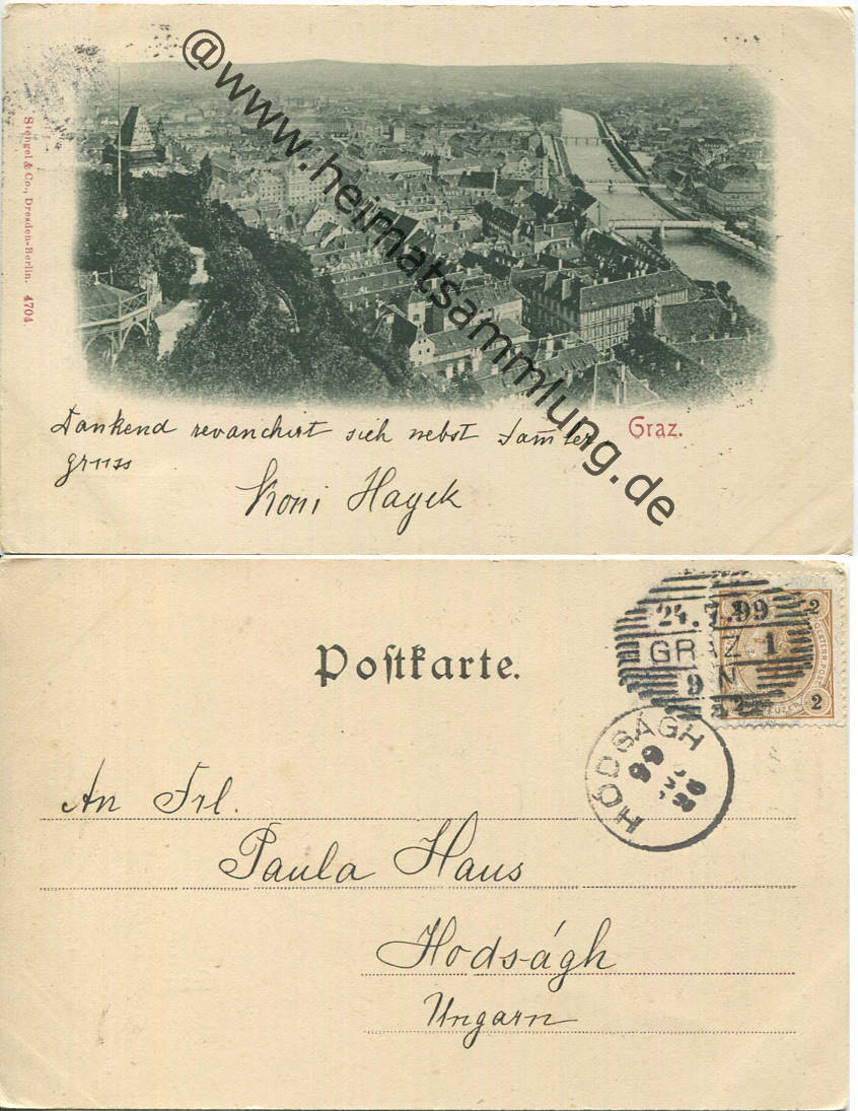 @www.heimatsammlung.de
Stengel & Co., Dresden-Berlin. 4704.
Dankend revanchirt sich nebst Samler
gruss
Graz.
Koni Hayek
Postkarte.
24.7.99
GRAZ 1
9 N
2 2
2 2
HÓDSÁGH
99
26
An Frl.
Paula Haus
Hodságh
Ungarn